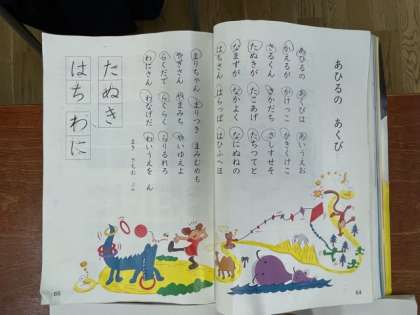 あひるの あくび
あひるの あくびは あいうえお
かえるが かけっこ かきくけこ
さるくん さかだち さしすせそ
たぬきが たこあげ たちつてと
なまずが なかよく なにぬねの
はちさん はらっぱ はひふへほ
64
まりちゃん まりつき まみむめも
やぎさん やまみち やいゆえよ
らくだで らくらく らりるれろ
わにさん わなげだ わいうえを ん
まき さちお ぶん
たぬき
はち わに
65